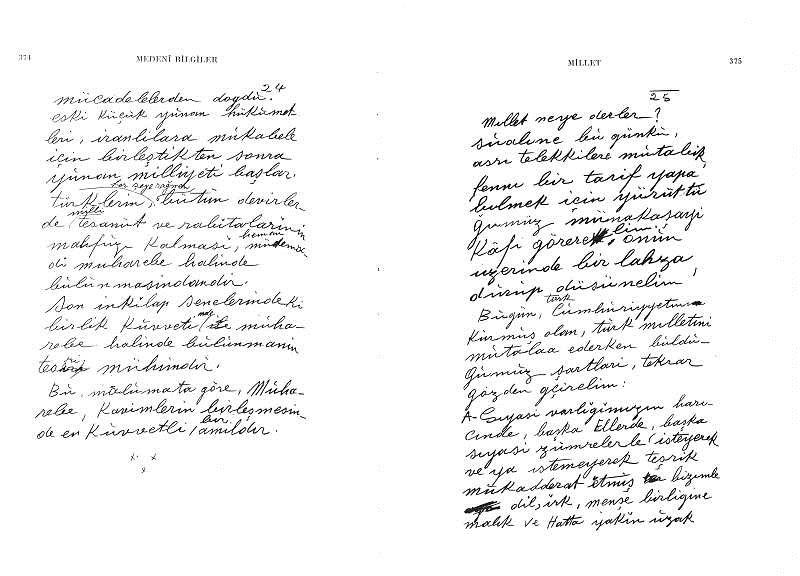 374
MEDENÎ BİLGİLER
24
mücadelelerden doğdu.
eski küçük yünan hükümet
leri, iranlılara mükabele
için birleştikten sonra
yünan milliyeti başlar.
her şeye rağmen
türklerin, bütün devirler-
millî
de tesanüt ve rabıtalarının
hemen
mahfuz kalması, mütema-
di muharebe halinde
bülünmasındandır.
Son inkılap senelerindeki
birlik küvveti müha-
rebe halinde bülünmanin
tesiri mühimdir.
Bü, malümata göre, Müha-
rebe, Kavimlerin birleşmesin-
bir
de en küvvetli amildir.
x x
x
MİLLET
375
25
Millet neye derler?
süaline bü günkü,
asrı telekkilere mütabık
fennî bir tarif yapa
bilmek için yürüttü
ğümüz münakaşayi
Kâfi görerek, onün
üzerinde bir lahza
dürüp düşünelim,
türk
Bügün, Cümhüriyyetini
kürmüş olan, türk milletini
mütalaa ederken büldü-
ğümüz şartları, tekrar
gözden gçirelim:
A- Siyasi varlığımızın hari-
cinde, başka Ellerde, başka
siyasi zümrelerle isteyerek
ve ya istemeyerek teşrik
mükadderat etmiş bizimle
dil, ırk, menşe birliğine
malik ve Hatta yakin üzak